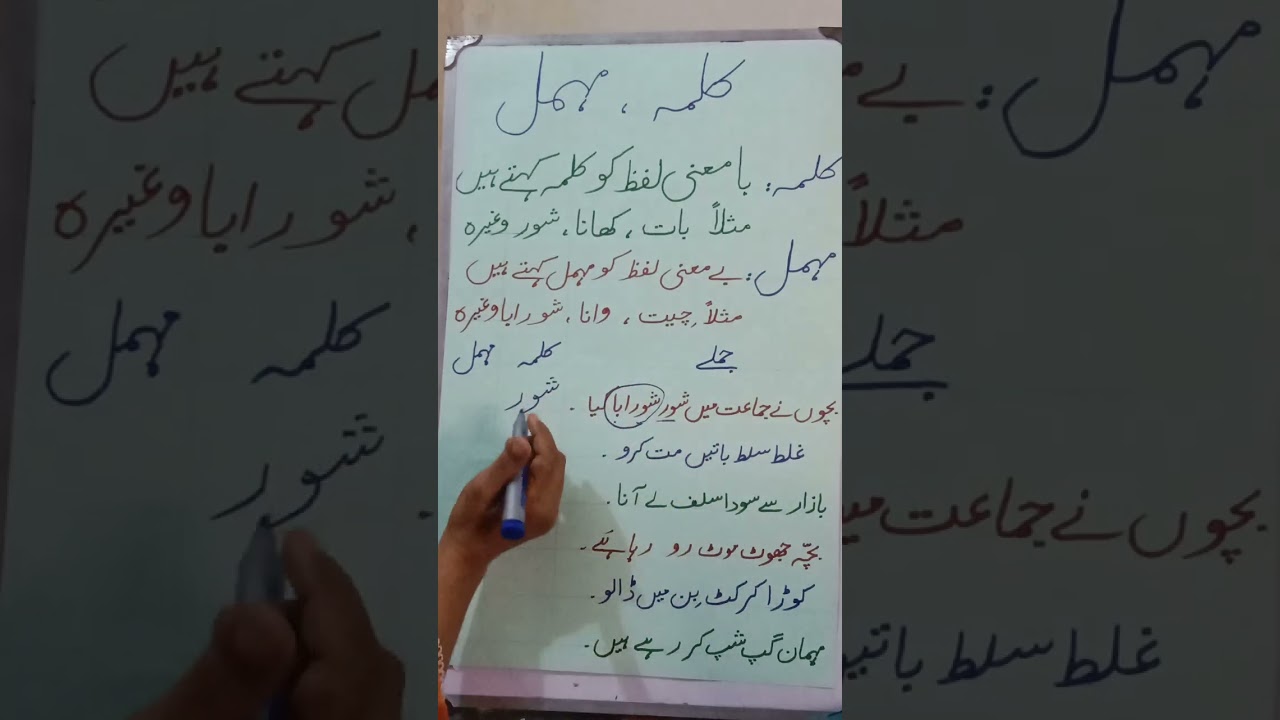 کلمہ ، مہمل
کلمہ: با معنی لفظ کو کلمہ کہتے ہیں
مثلاً بات ، کھانا، شور وغیرہ
مہمل: بے معنی لفظ کو مہمل کہتے ہیں
مثلاً چیت ، وانا، شورابا وغیرہ
جملے کلمہ مہمل
بچوں نے جماعت میں شور شورابا کیا ۔ شور
غلط سلط باتیں مت کرو ۔
بازار سے سودا سلف لے آنا ۔
بچّہ جھوٹ موٹ رو رہا ہے ۔
کوڑا کرکٹ بِن میں ڈالو ۔
مہمان گپ شپ کر رہے ہیں ۔